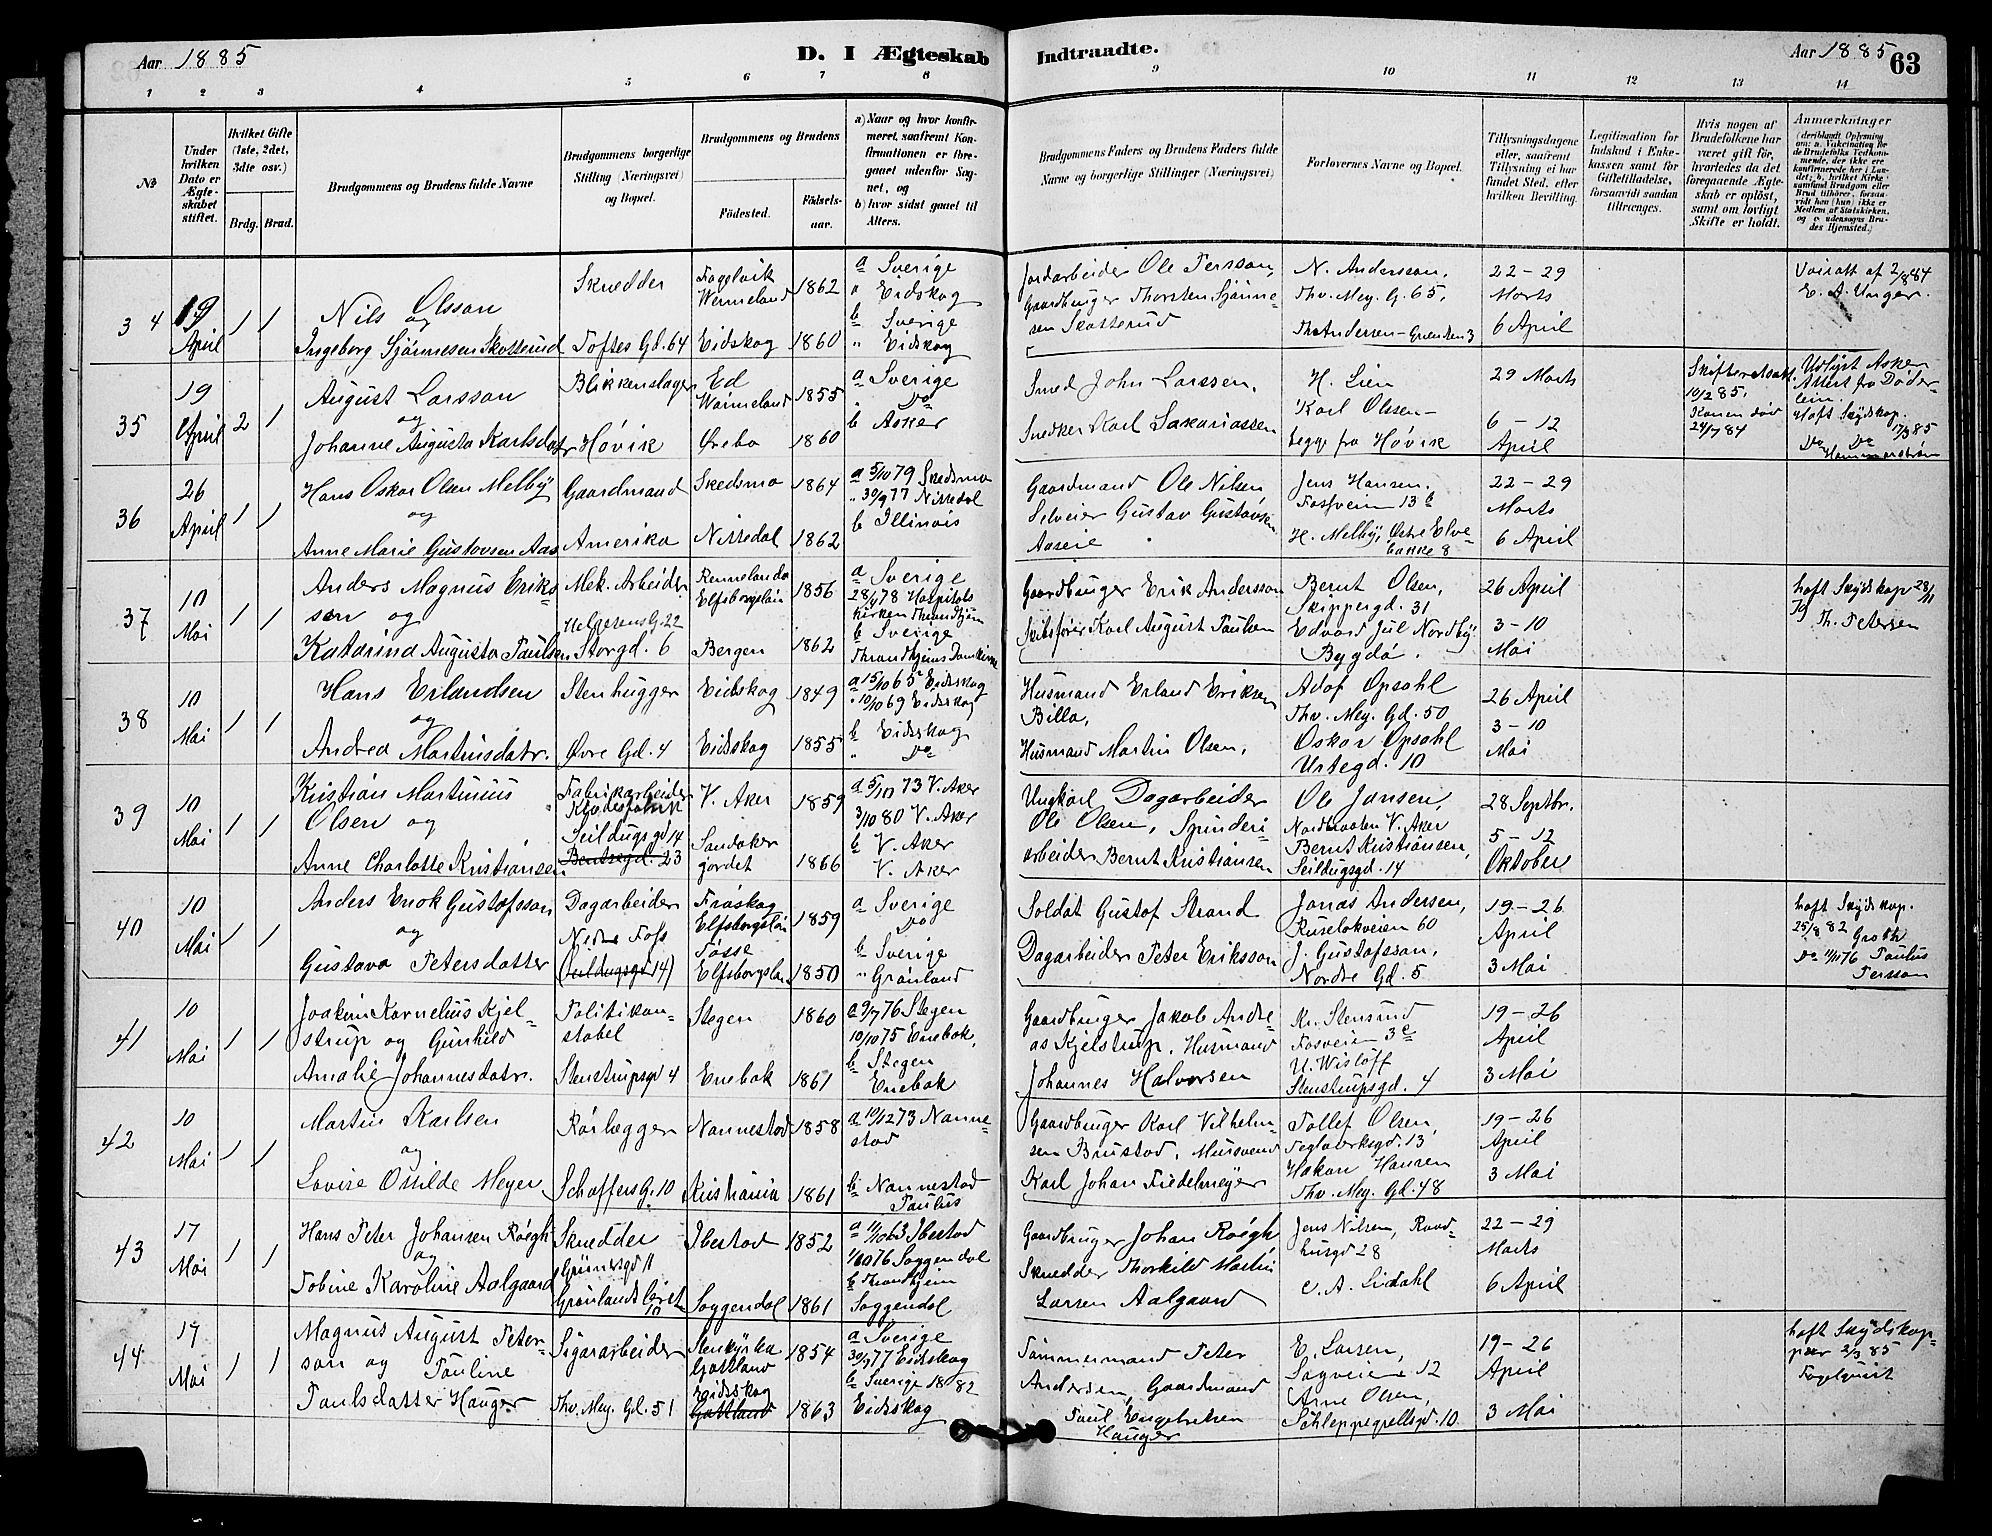 Aar 1885
D. I Ægteskab
Indtraadte.
Aar 1885
63
1 2 3 4 5 6 7 8 9 10 11 12 13 14
№
Under hvilken Dato er Ægteskabet stiftet.
Hvilket Gifte (1ste, 2det, 3die osv.)
Brdg. Brud.
Brudgommens og Brudens fulde Navne
Brudgommens borgerlige Stilling (Næringsvei) og Bopæl.
Brudgommens og Brudens
Födested.
Födselsaar.
a) Naar og hvor konfirmeret, saafremt Konfirmationen er foregaaet udenfor Sognet, og
b) hvor sidst gaaet til Alters.
Brudgommens Faders og Brudens Faders fulde Navne og borgerlige Stillinger (Næringsvei)
Forlovernes Navne og Bopæl.
Tillysningsdagene eller, saafremt Tillysning ei har fundet Sted, efter hvilken Bevilling.
Legitimation for Indskud i Enkekassen samt for Giftetilladelse, forsaavidt saadan tiltrænges.
Hvis nogen af Brudefolkene har været gift för, hvorledes da det foregaaende Ægteskab er oplöst, samt om lovligt Skifte er holdt.
Anmærkninger
(deriblandt Oplysning om: a. Vakcination for de Brudefolks Vedkommende, der ikke ere konfirmerede her i Landet; b. hvilket Kirkesamfund Brudgom eller Brud tilhörer, forsaavidt han (hun) ikke er Medlem af Statskirken, og c. udensogns Brudes Hjemsted.)
34
19 April
1 1
Nils Olsson
og
Ingeborg Sjönnesen Skotterud
Skrædder
Toftes Gd. 64
Fogelvik Wermeland 1862
Eidskog 1860
a Sverige
" Eidskog
b Sverige
" Eidskog
Jordarbeider Ole Persson,
Gaardbruger Thorsten Sjönnesen Skotterud
N. Andersson,
Thv. Mey. G. 65,
Th Andersen - Grændsen 3
22-29 Marts
6 April
E. A. Unger.
35
19 April
2 1
August Larsson
og
Johanne Augusta Karlsdatr
Blikkenslager
Hövik
Ed Wärmeland 1855
Örebo 1860
a Sverige
" Do
b Asker
Smed John Larssen,
Snedker Karl Sakariassen
H. Lien
Karl Olssen -
begge fra Hövik
29 Marts
6-12 April
Skifteretsatt.
10/2 85.
Konen död
24/7 84
Udlyst Asker
Attest fra Döderlein.
Haft Skydskop.
Do Do 17/3 85
Hammerström
36
26 April
1 1
Hans Oskar Olsen Melby
og
Anne Marie Gustavsen Aas
Gaardmand
Amerika
Skedsmo 1864
Nittedal 1862
a 5/10 79 Skedsmo
" 30/9 77 Nittedal
b Illinois
Gaardmand Ole Nilsen
Selveier Gustav Gustavsen
Aaseie
Jens Hansen,
Fossveien 13 b
H. Melby, Östre Elvebakke 8
22-29 Marts
6 April
37
10 Mai
1 1
Anders Magnus Eriksson og
Katarina Augusta Paulsen
Mek. Arbeider
Helgesens G. 22
Storgd. 6
Rennelanda Elfsborgslän 1856
Bergen 1862
a Sverige
28/4 78 Hospitalskirken Throndhjem
b Sverige
Throndhjems Domkirke
Gaardbruger Erik Andersson
Skibsförer Karl August Paulsen
Bernt Olsen,
Skippergd. 31
Edvard Jul Nordby
Bygdö.
26 April
3-10 Mai
haft Skydskop 28/11
79 Th. Petersen
38
10 Mai
1 1
Hans Erlandsen
og
Andrea Martinsdatr.
Stenhugger
Övre Gd. 4
Eidskog 1849
Eidskog 1855
a 15/10 65 Eidskog
" 10/10 69 Eidskog
b Eidskog
" Do
Husmand Erland Eriksen
Billa,
Husmand Martin Olsen,
Adof Opsahl
Thv. Mey. Gd. 50
Oskar Opsahl
Urtegd. 10
26 April
3-10 Mai
39
10 Mai
1 1
Kristian Martinius
Olsen og
Anne Charlotte Kristiansen
Fabrikarbeider
Klædesfabrik
Seildugsgd 14
Bentsegd. 23
V. Aker 1859
Sandakerjordet 1866
a 5/10 73 V. Aker
3/10 80 V. Aker
b V. Aker
V. Aker
Ungkarl Dagarbeider
Ole Olsen, Spinderiarbeider Bernt Kristiansen
Ole Jansen,
Nordbraaten V. Aker
Bernt Kristiansen,
Seildugsgd. 14
28 Septbr.
5-12 Oktober
40
10 Mai
1 1
Anders Enok Gustafsson
og
Gustava Petersdatter
Dagarbeider
Nedre Foss
(Seildugsgd 14)
Fröskog Elfsborgslän 1859
Tösse Elfsborgslän 1850
a Sverige
Do
b Sverige
" Grönland
Soldat Gustof Strand
Dagarbeider Peter Eriksson
Jonas Andersen,
Ruselökveien 60
J. Gustafsson,
Nordre Gd. 5
19-26 April
3 Mai
haft Skydskop.
25/8 82 Groth
Do 1/11 76 Paulus
Persson
41
10 Mai
1 1
Joakim Kornelius Kjelstrup og Gunhild
Amalie Johannesdatr.
Politikonstabel
Stenstrupsgd 4
Stegen 1860
Enebak 1861
a 9/7 76 Stegen
10/10 75 Enebak,
b Stegen
Enebak
Gaardbruger Jakob Andreas Kjelstrup. Husmand
Johannes Halvorsen
Kr. Stensrud
Fosveien 3 c
U. Wislöff
Stenstrupsgd. 4
19-26 April
3 Mai
42
10 Mai
1 1
Martin Karlsen
og
Lovise Osvilde Meyer
Rörlægger
Schaffers G. 10
Nannestad 1858
Kristiania 1861
a 10/12 73 Nannestad
b Nannestad
Paulus
Gaardbruger Karl Vilhelmsen Brustad, Musvend
Karl Johan Fredelmeyer
Tollef Olsen,
Teglverksgd. 13
Hakon Hansen
Thv. Mey. Gd. 48
19-26 April
3 Mai
43
17 Mai
1 1
Hans Peter Johansen Röegh
og
Tobine Karoline Aalgaard
Skrædder
Grönlandsleret 10
Ibestad 1852
Soggendal 1861
a 11/10 63 Ibestad
1/10 76 Soggendal
b Throndhjem
Soggendal
Gaardbruger Johan Röegh
Skrædder Thorkild Martin
Larsen Aalgaard
Jens Nilsen, Raadhusgd 28
C. A. Lidahl
22-29 Marts
6 April
44
17 Mai
1 1
Magnus August Peterson og Pauline
Paulsdatter Hauger
Sigararbeider
Thv. Mey. Gd. 51
Stenkyrka Gottland 1854
Eidskog
Gottland 1863
a Sverige
30/9 77 Eidskog
b Sverige 1882
Eidskog
Tömmermand Peter
Andersen, Gaardmand
Paul Engebretsen
Hauger
E. Larsen,
Sagveien 12
Arne Olsen,
Schleppegrellsgd. 10
19-26 April
3 Mai
haft Skydskopper 2/3 85
Fogelquist